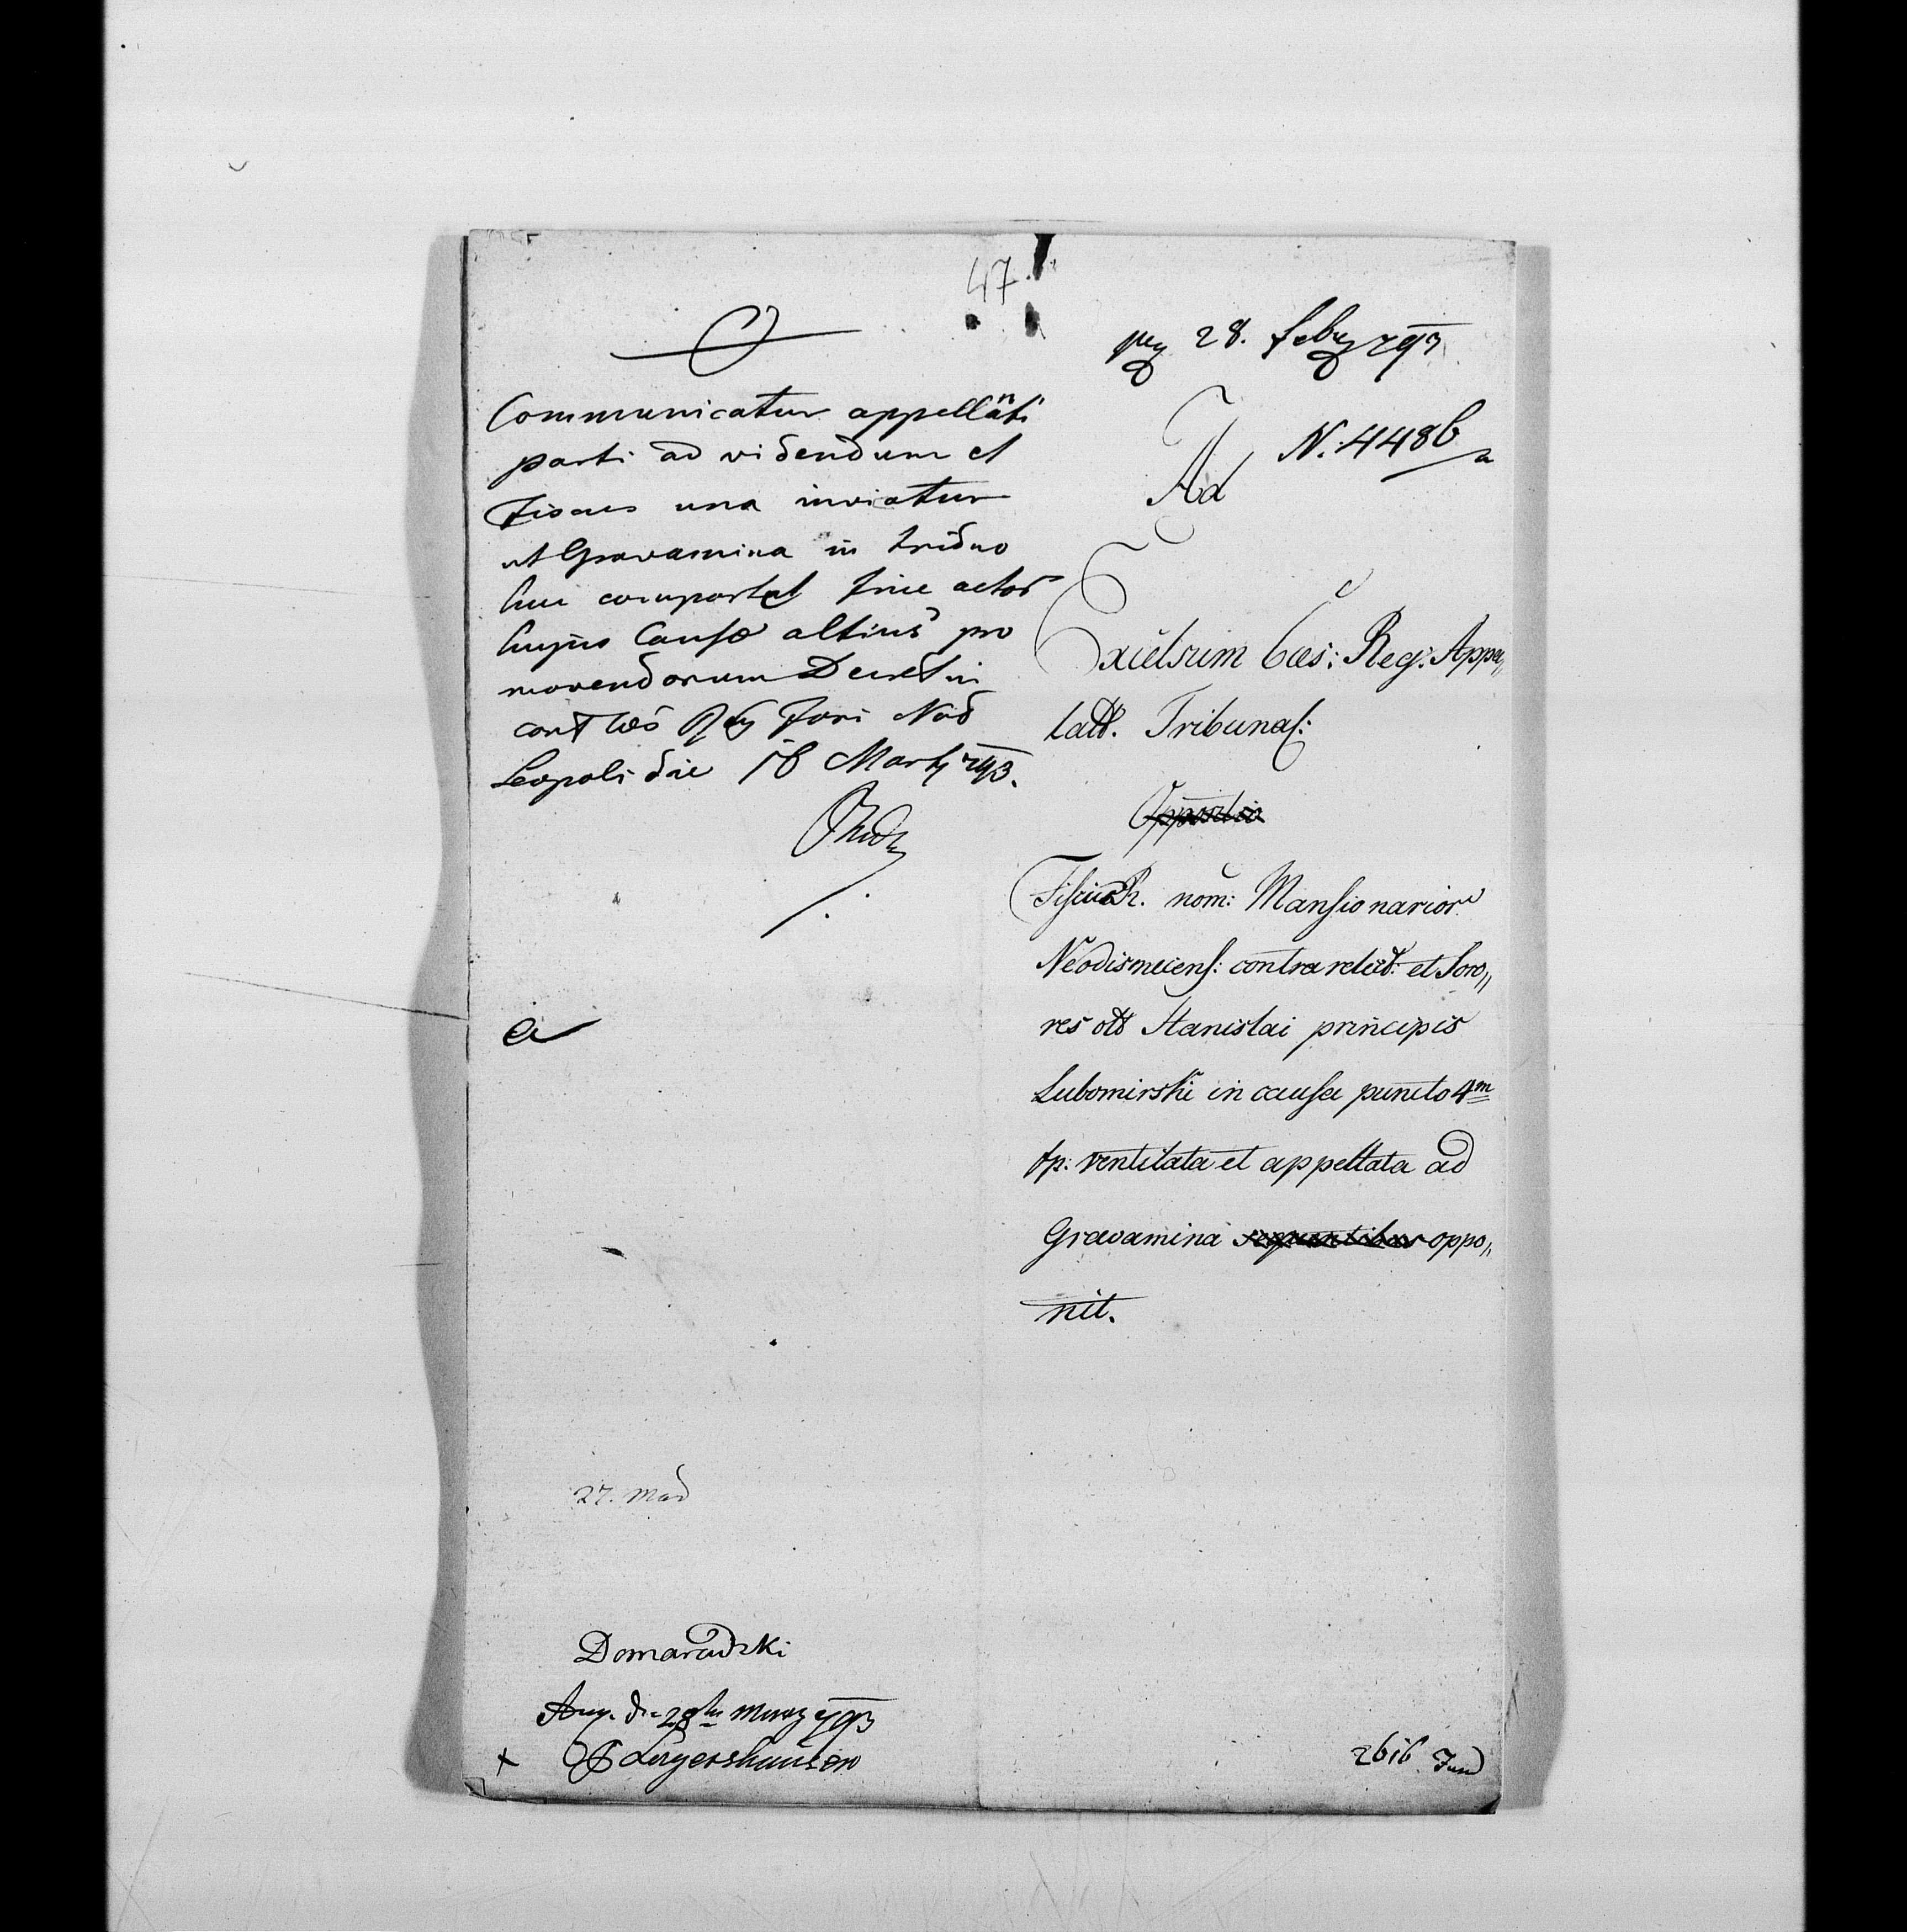 47.
Communicatur appellanti
parti ad videndum et
Fiscus una inviatur
ut Gravamina in triduo
huc comportet fine actor
hujus Causæ altius pro
movendorum Decret in
Cons Cæs Reg Fori Nob
Leopoli die 18 Martj 793.
a
27. Mad
Domaradzki
die 28 793
x Lagershausen
28. febr 793
N. 4486
Ad
Excelsum Cæs: Reg: Appel„
latt. Tribunal:
Oppositio
Fiscus R. nom: Mansionarior
Neodismicens: contra relict: et Soro„
res olt Stanislai principis
Lubomirski in causa puncto 4m
fp: ventilata et appellata ad
Gravamina sequentibus oppo„
nit.
2616 Jud